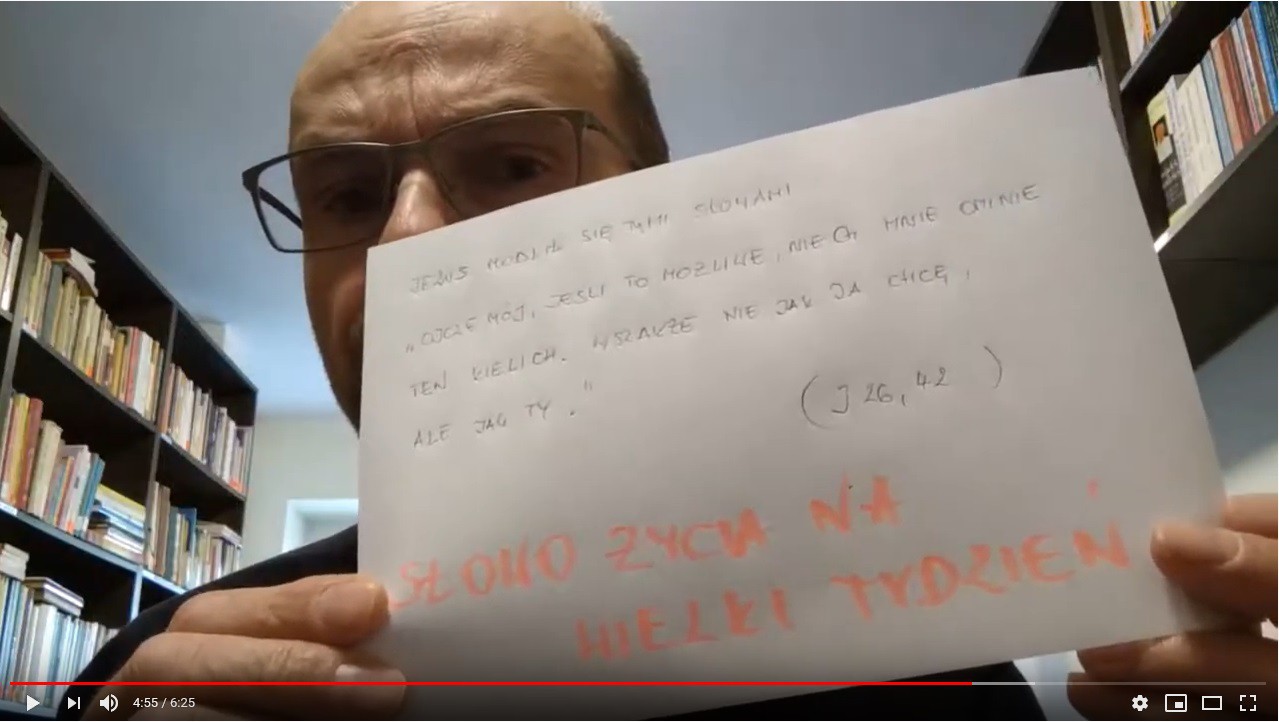 JEZUS MODLIŁ SIĘ TYMI SŁOWAMI
„OJCZE MÓJ, JEŚLI TO MOŻLIWE, NIECH MNIE OMINIE
TEN KIELICH. WSZAKŻE NIE JAK JA CHCĘ,
ALE JAK TY."
(J 26,42)
SŁOWO ŻYCIA NA
WIELKI TYDZIEŃ
4:55 / 6:25